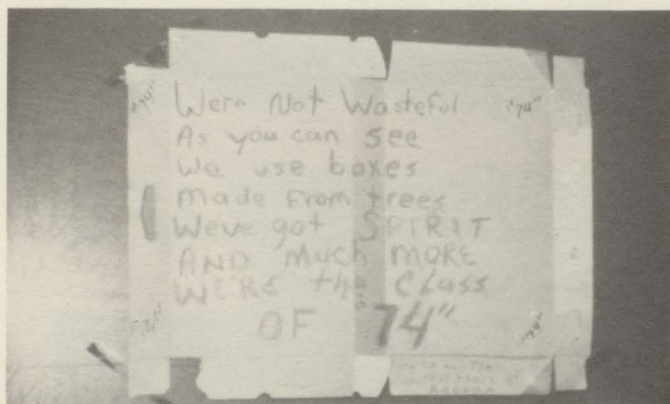 "74"
"74"
Were Not Wasteful
As you can see
We use boxes
Made From trees
Weve got SPIRIT
AND Much MORE
WE'RE the Class
OF 74"
"74"
"74"